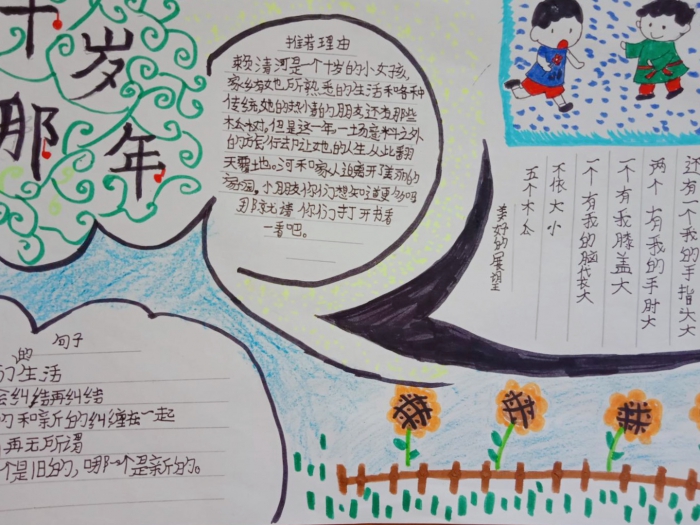 十岁
那年
推荐理由
赖清河是一个十岁的小女孩,
家乡有她所熟悉的生活和各种
传统,她的热情的朋友还有那些
木瓜树。但是这一年一场意料之外
的旅行却让她的人生从此翻
天覆地。河和家人逃离开美丽的
家园。小朋友你们想知道更多吗
那就请你们打开书看
一看吧。
还有一个我的手指大
两个有我的手肘大
一个有我膝盖大
一个有我的脑袋大
不依大小
五个木瓜
美好的展望
句子
的
们生活
会纠结再纠结
的和新的纠缠在一起
再无所谓
个是旧的,哪一个是新的。